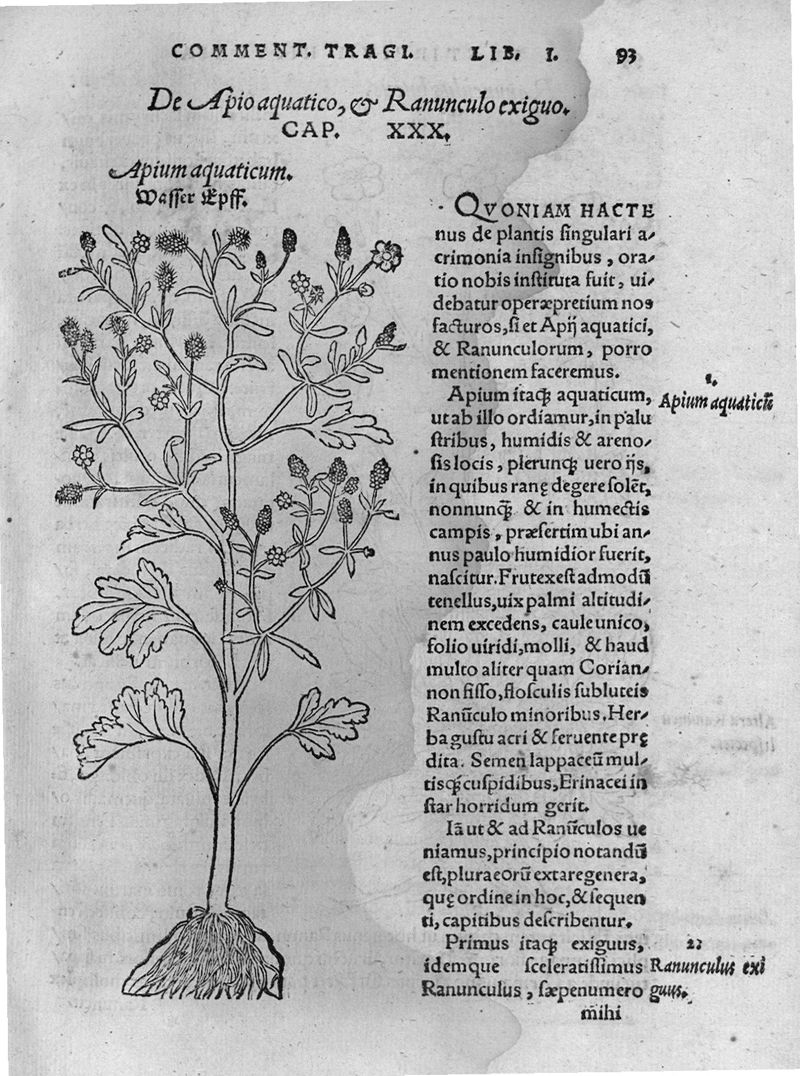 COMMENT. TRAGI. LIB. I. 93
De Apio aquatico, & Ranunculo exiguo.
CAP. XXX.
Apium aquaticum.
Wasser Epff.
QVONIAM HACTE
nus de plantis singulari a-
crimonia insignibus, ora-
tio nobis instituta fuit, ui-
debatur operæpretium nos
facturos, si et Apij aquatici,
& Ranunculorum, porro
mentionem faceremus.
Apium itaq; aquaticum,
ut ab illo ordiamur, in palu
stribus, humidis & areno-
sis locis, plerunq; uero ijs,
in quibus ranę degere solẽt,
nonnunq̃ & in humectis
campis, præsertim ubi an-
nus paulo humidior fuerit,
nascitur. Frutex est admodũ
tenellus, uix palmi altitudi-
nem excedens, caule unico,
folio uiridi, molli, & haud
multo aliter quam Corian-
non fisso, flosculis subluteis
Ranũculo minoribus. Her-
ba gustu acri & feruente prę
dita. Semen lappaceũ mul-
tisq; cuspidibus, Erinacei in
star horridum gerit.
Iã ut & ad Ranũculos ue
niamus, principio notandũ
est, plura eorũ extare genera,
quę ordine in hoc, & sequen
ti, capitibus describentur.
Primus itaq; exiguus,
idemque sceleratissimus
Ranunculus, sæpenumero
mihi
1.
Apium aquaticũ
2;
Ranunculus exi
guus.